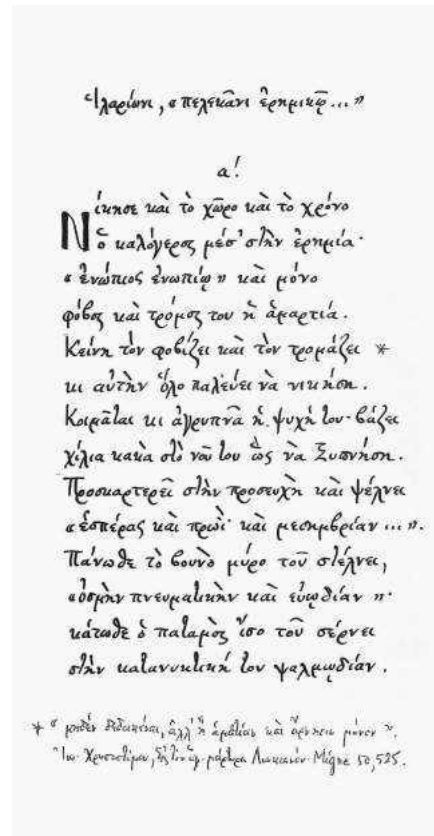 Ἱλαρίωνι, «πελεκᾶνι ἐρημικῷ...»
α!
Νίκησε καὶ τὸ χῶρο καὶ τὸ χρόνο
ὁ καλόγερος μέσ' στὴν ἐρημία·
«ἐνώπιος ἐνωπίῳ» καὶ μόνο
φόβος καὶ τρόμος του ἡ ἁμαρτία.
Κείνη τὸν φοβίζει καὶ τὸν τρομάζει *
κι αὐτὴν ὅλο παλεύει νὰ νικήσῃ.
Κοιμᾶται κι ἀγρυπνᾶ ἡ ψυχή του· βάζει
χίλια κακὰ στὸ νοῦ του ὣς νὰ ξυπνήσῃ.
Προσκαρτερεῖ στὴν προσευχὴ καὶ ψέλνει
«ἑσπέρας καὶ πρωῒ καὶ μεσημβρίαν...».
Πάνωθε τὸ βουνὸ μύρο τοῦ στέλνει,
«ὀσμὴν πνευματικὴν καὶ εὐωδίαν»·
κάτωθε ὁ ποταμὸς ἴσο τοῦ σέρνει
στὴν κατανυκτική του ψαλμῳδίαν.
* « μηδὲν δεδοικέναι, ἀλλ' ἢ ἁμαρτίαν καὶ ἄρνησιν μόνον ».
Ἰω. Χρυσοστόμου, Εἰς τὸν ἅγ. μάρτυρα Λουκιανόν· Migne 50,525.